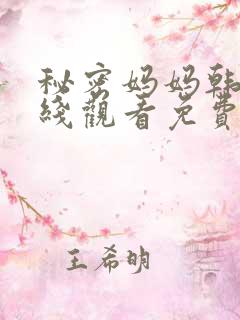 秘密妈妈韩
线观看免费
王希明